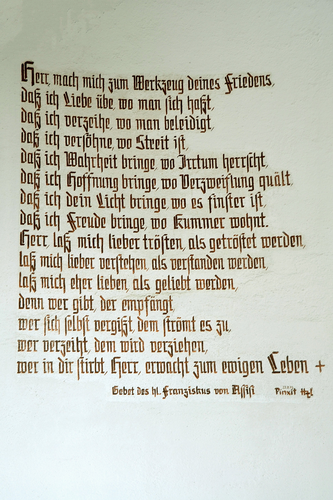 Herr, mach mich zum Werkzeug deines Friedens,
daß ich Liebe übe, wo man sich haßt,
daß ich verzeihe, wo man beleidigt,
daß ich versöhne, wo Streit ist,
daß ich Wahrheit bringe, wo Irrtum herrscht,
daß ich Hoffnung bringe, wo Verzweiflung quält,
daß ich dein Licht bringe, wo es finster ist,
daß ich Freude bringe, wo Kummer wohnt.
Herr, laß mich lieber trösten, als getröstet werden,
laß mich lieber verstehen, als verstanden werden,
laß mich eher lieben, als geliebt werden,
denn wer gibt, der empfängt,
wer sich selbst vergißt, dem strömt es zu,
wer verzeiht, dem wird verziehen,
wer in dir stirbt, Herr, erwacht zum ewigen Leben +
Gebet des hl. Franziskus von Assisi Pinxit